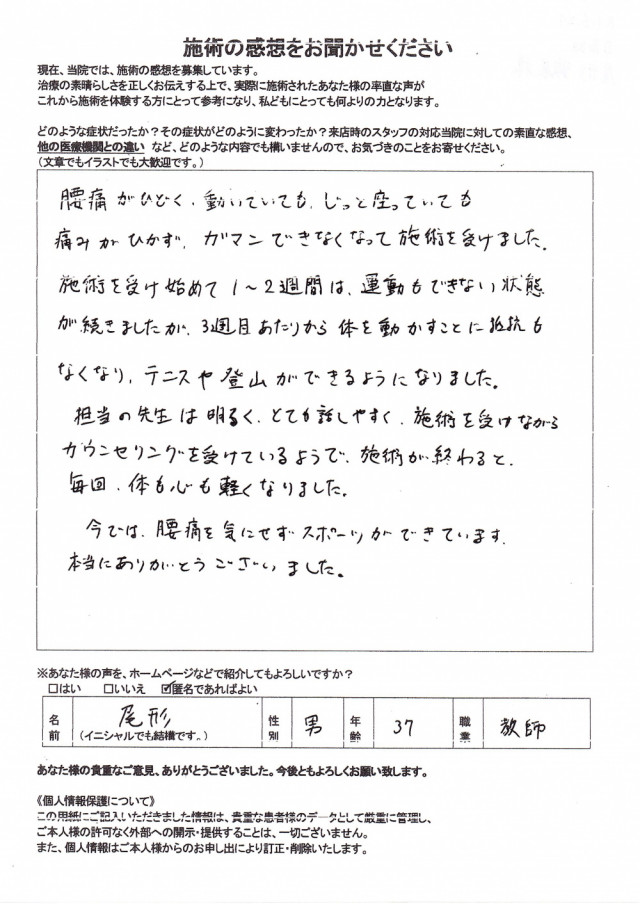 施術の感想をお聞かせください
現在、当院では、施術の感想を募集しています。
治療の素晴らしさを正しくお伝えする上で、実際に施術されたあなた様の率直な声が
これから施術を体験する方にとって参考になり、私どもにとっても何よりの力となります。
どのような症状だったか？その症状がどのように変わったか？来店時のスタッフの対応当院に対しての素直な感想、
他の医療機関との違い など、どのような内容でも構いませんので、お気づきのことをお寄せください。
（文章でもイラストでも大歓迎です。）
腰痛がひどく、動いていても、じっと座っていても
痛みがひかず、ガマンできなくなって施術を受けました。
施術を受け始めて1〜2週間は、運動もできない状態
が続きましたが、3週目あたりから体を動かすことに抵抗も
なくなり、テニスや登山ができるようになりました。
担当の先生は明るく、とても話しやすく、施術を受けながら
カウンセリングを受けているようで、施術が終わると、
毎回、体も心も軽くなりました。
今では、腰痛を気にせずスポーツができています。
本当にありがとうございました。
※あなた様の声を、ホームページなどで紹介してもよろしいですか？
□はい □いいえ ☑匿名であればよい
名前 尾形 （イニシャルでも結構です。） 性別 男 年齢 37 職業 教師
あなた様の貴重なご意見、ありがとうございました。今後ともよろしくお願い致します。
《個人情報保護について》
この用紙にご記入いただきました情報は、貴重な患者様のデータとして厳重に管理し、
ご本人様の許可なく外部への開示・提供することは、一切ございません。
また、個人情報はご本人様からのお申し出により訂正・削除いたします。